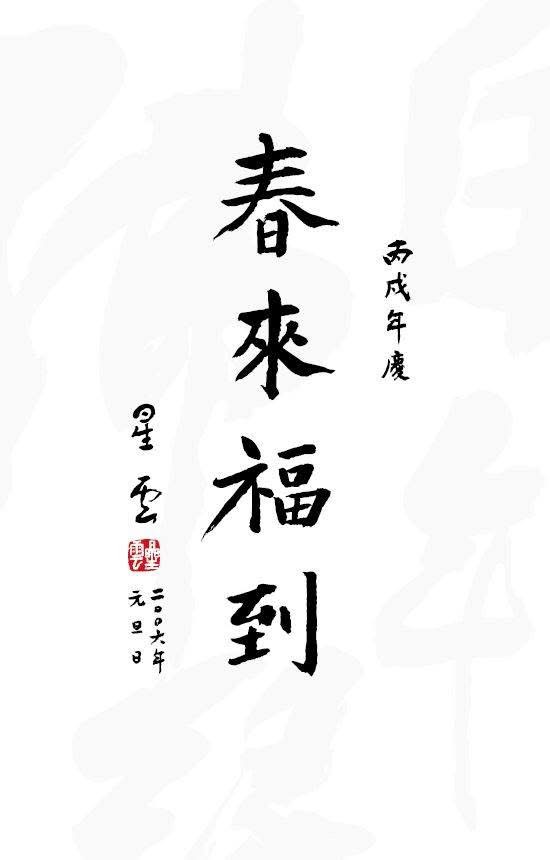 丙戌年慶
春來福到
星雲
星雲
二〇〇六年
元旦日